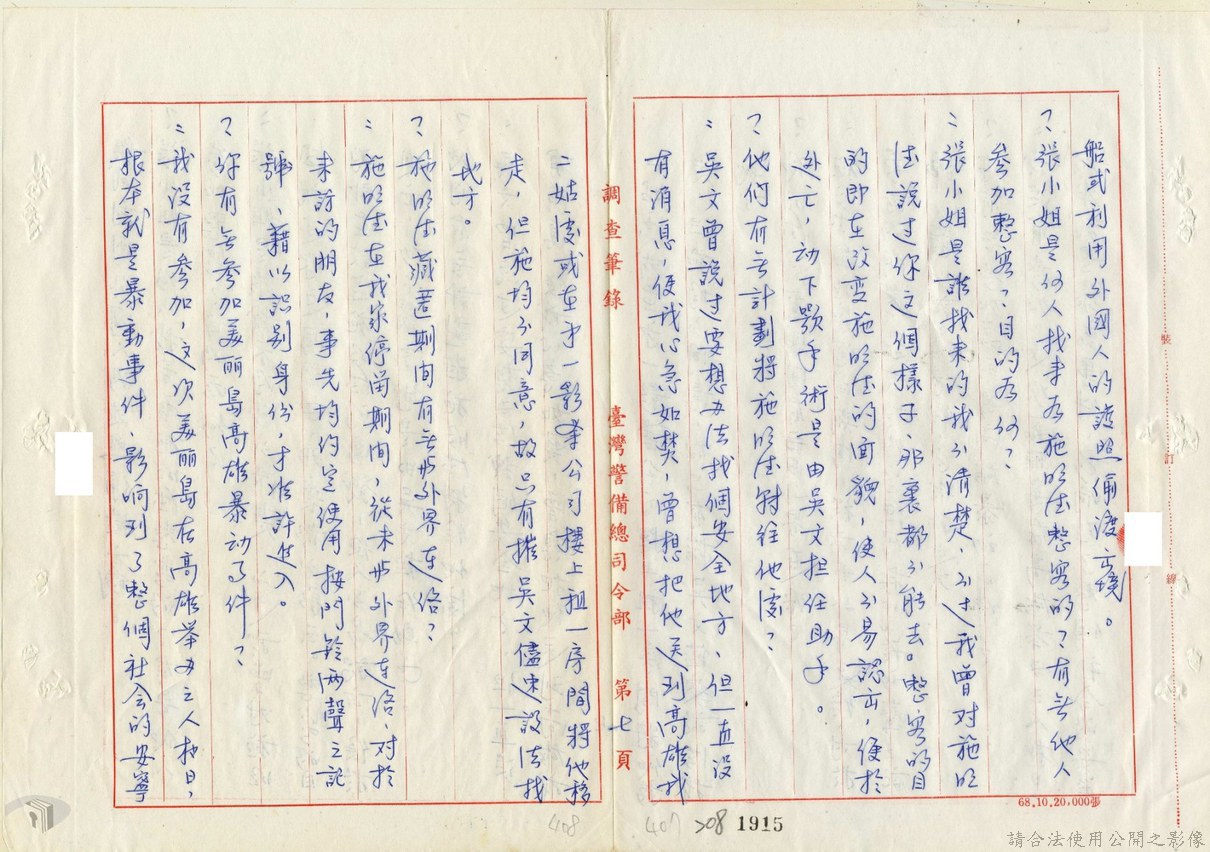 船或利用外國人的護照偷渡出境。
？張小姐是何人找来為施明德整容的？有無他人
参加整容？目的為何？
：張小姐是誰找来的我不清楚，不过我曾对施明
德說过你这個樣子，那裏都不能去。整容的目
的即在改变施明德的面貌，使人不易認出，便於
逃亡，动下顎手術是由吳文担任助手。
？他们有無計劃將施明德移往他處？
：吳文曾說过要想办法找個安全地方，但一直没
有消息，使我心急如焚，曾想把他送到高雄我
調查筆錄
臺灣警備總司令部
第七頁
二姑處或在第一影業公司樓上租一房間將他移
走，但施均不同意，故只有撰吳文儘速設法找
地方。
？施明德藏匿期间有無與外界連络？
：施明德在我家停留期间，從未與外界連洛，对於
来訪的朋友，事先均约定使用按門鈴两聲之記
號，藉以識别身份，才准許进入。
？你有無參加美丽島高雄暴动事件？
：我没有參加，这次美丽島在高雄举办之人权日，
根本就是暴動事件，影响到了整個社会的安寧
68.10.20,000張
408
407
208
1915
裝
訂
線
請合法使用公開之影像